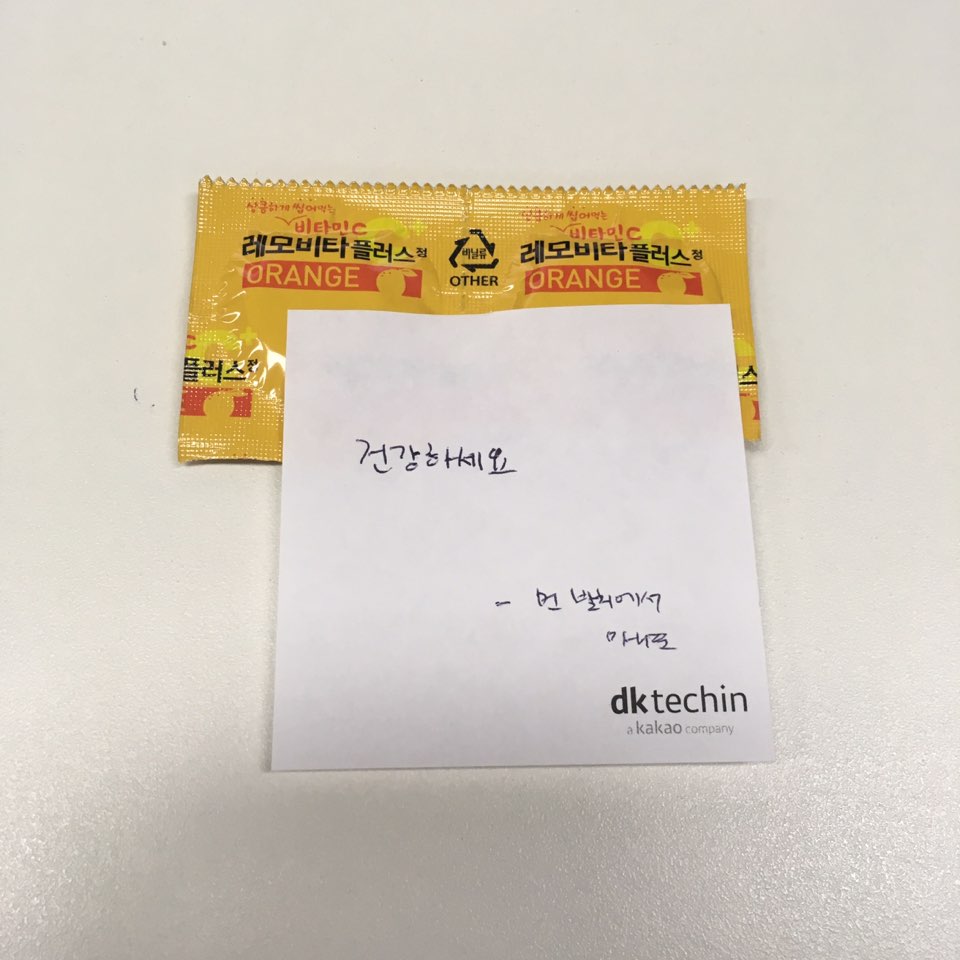 상큼하게 씹어먹는
비타민C
레모비타플러스정
ORANGE
비닐류
OTHER
상큼하게 씹어먹는
비타민C
레모비타플러스정
ORANGE
C
플러스정
E
스
건강하세요
- 먼 발치에서
마니또
dktechin
a kakao company